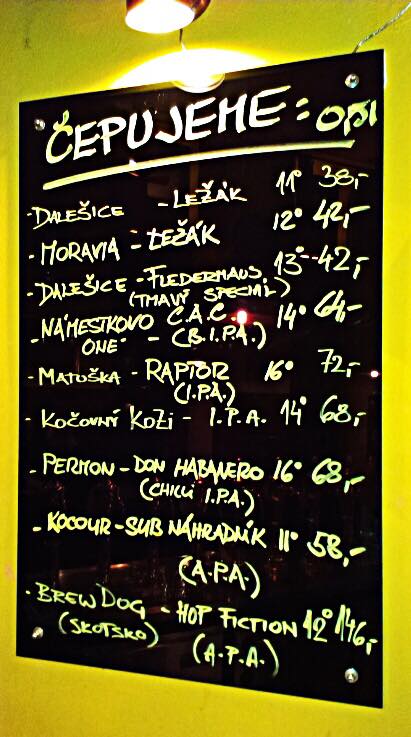 ČEPUJEME: 0,5l
- DALEŠICE - LEŽÁK 11° 38,-
- MORAVIA - LEŽÁK 12° 42,-
- DALEŠICE - FLEDERMAUS 13° - 42,-
(TMAVÝ SPECIÁL)
- NÁMESTKOVO Č.A.C. 14° 64,-
ONE - (B.I.P.A.)
- MATUŠKA - RAPTOR 16° 72,-
(I.P.A.)
- KOČOVNÝ KOZI - I.P.A. 14° 68,-
- PERMON - DON HABANERO 16° 68,-
(CHILLI I.P.A.)
- KOCOUR - SUB NÁHRADNÍK 11° 58,-
(A.P.A.)
- BREWDOG - HOP FICTION 12° 146,-
(SKOTSKO) (A.P.A.)